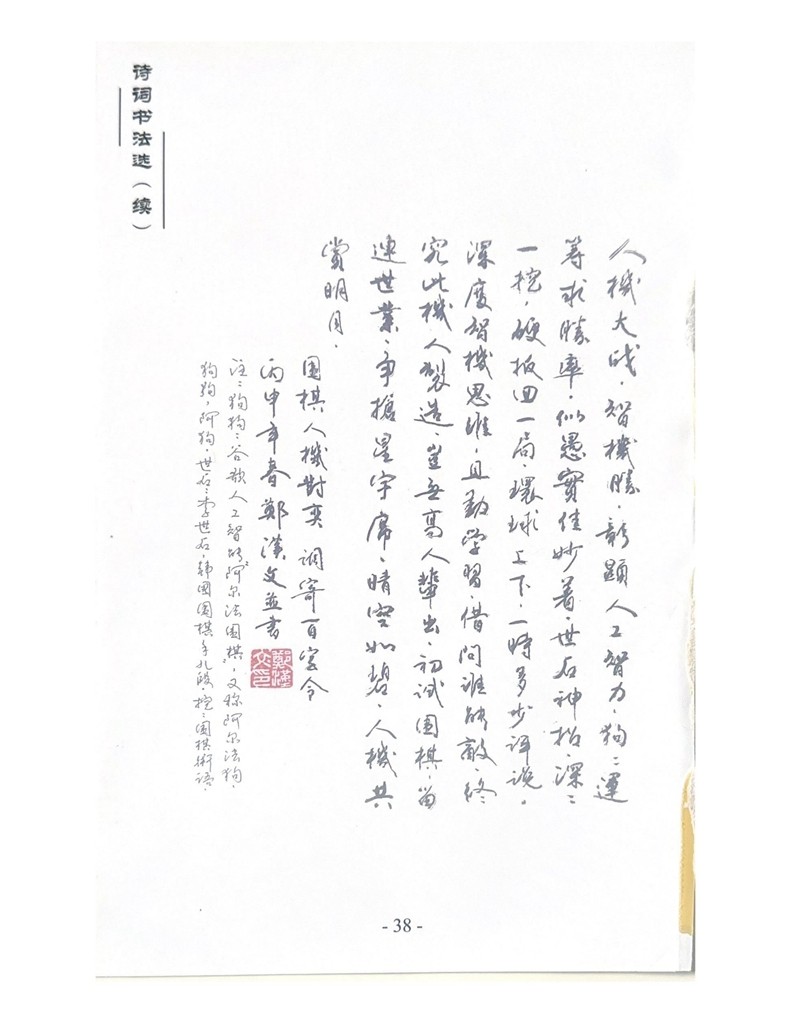 诗词书法选（续）
人機大战，智機勝，彰顯人工智力，狗狗運
筹求勝率，似愚實佳妙著，世石神招，深深
一挖，硬扳回一局，環球上下，一時多少評說。
深度智機思维，且勤学習，借問谁能敵，终
究此機人製造，豈无高人輩出，初试围棋，当
連世業，争搶星宇席，晴空如碧，人機共
賞明月。
围棋人機對弈 調寄百字令
丙申年春鄭漢文並書
鄭漢文印
注：狗狗：谷歌人工智能“阿尔法围棋”，又称阿尔法狗，
狗狗，阿狗。世石：李世石，韩國围棋手九段。挖：围棋術語。
- 38 -